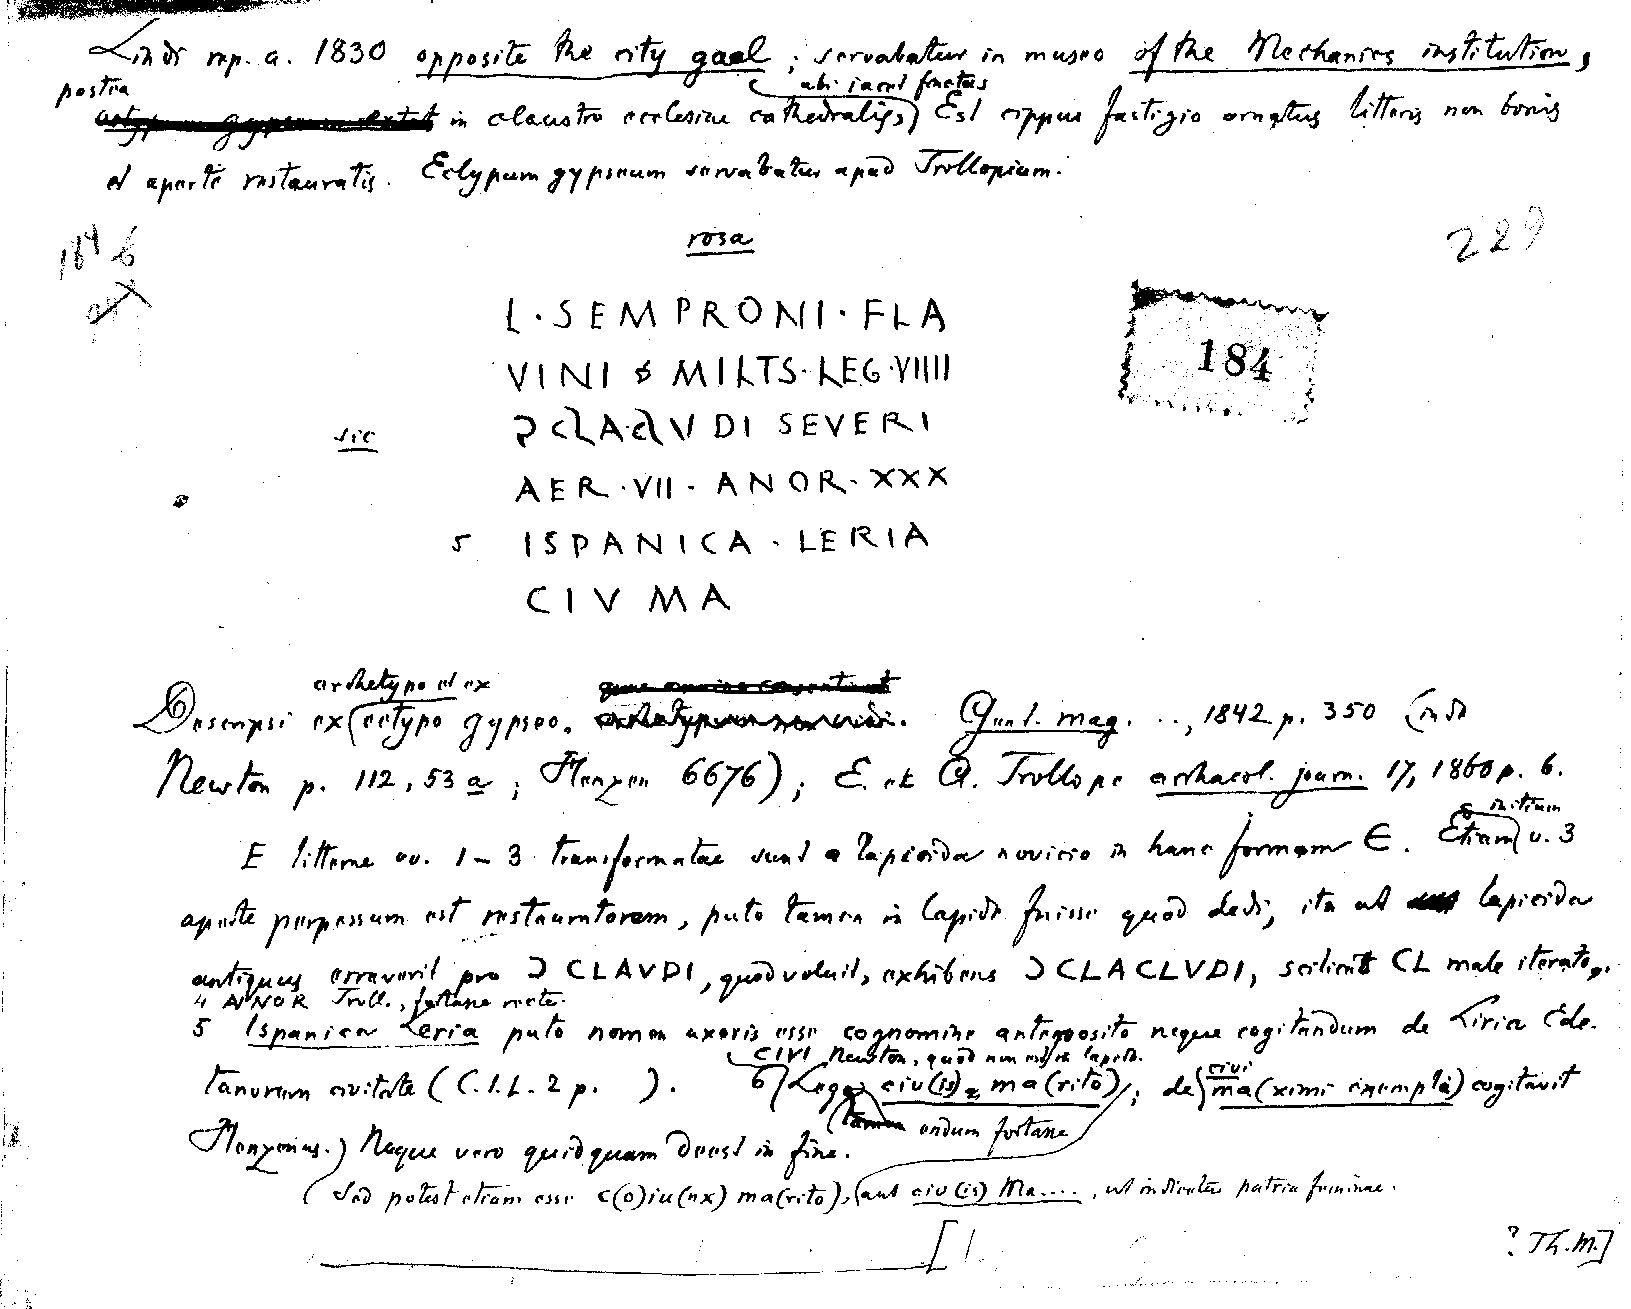 Lindi rep. a. 1830 opposite the city gaol; servabatur in museo of the Mechanics institution,
postea
in claustro ecclesiae cathedralis, ubi iacet fractus
Est cippus fastigio ornatus litteris non bonis
et aperte restauratis. Ectypum gypseum servabatur apud Trollopium.
184 6
229
rosa
L·SEMPRONI·FLA
VINI MILTS·LEG·VIIII
184
sic
Ɔ CLA·CLVDI SEVERI
AER·VII·ANOR·XXX
5 ISPANICA·LERIA
CIV MA
archetypo et ex
Descripsi ex ectypo gypseo. Gent. mag. .., 1842 p. 350 (inde
Newton p. 112, 53 a; Henzen 6676); E. et A. Trollope archaeol. journ. 17, 1860 p. 6.
initium
E litterae vv. 1–3 transformatae sunt a lapicida novicio in hanc formam Є. Etiam v. 3
aperte perpessum est restauratorem, puto tamen in lapide fuisse quod dedi, ita ut lapicida
antiquus erraverit pro Ɔ CLAVDI, quod voluit, exhibens Ɔ CLACLVDI, scilicet CL male iterato.
4 ANNOR Troll., fortasse recte.
5 Ispanica Leria puto nomen uxoris esse cognomine anteposito neque cogitandum de Liria Ede-
CIVI Newton, quod non est in lapide.
tanorum civitate (C.I.L. 2 p. ). 6 Leg civ(is) ma(rito); de civi ma(ximi exempli) cogitavit
endum fortasse
Henzenus. Neque vero quidquam deest in fine.
Sed potest etiam esse c(o)iu(nx) ma(rito), aut civ(is) Ma...., ut indicetur patria feminae.
? Th. M.]